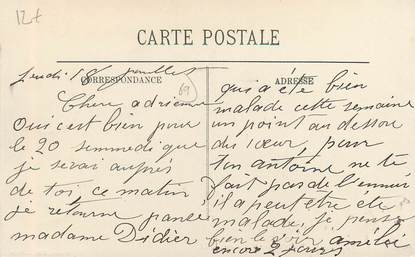 12+
CARTE POSTALE
CORRESPONDANCE
ADRESSE
jeudi 18 juillet
69
Chere adrienne
Oui c'est bien pour
le 20 sammedi que
je serai auprés
de toi, ce matin
je retourne
madame Didier
qui a été bien
malade cette semaine
un point au dessou
du cœur, pour
ton antoine ne te
fait pas de l'ennui
il a peut être été
malade, je pense
bien le voir
encore 2 jours